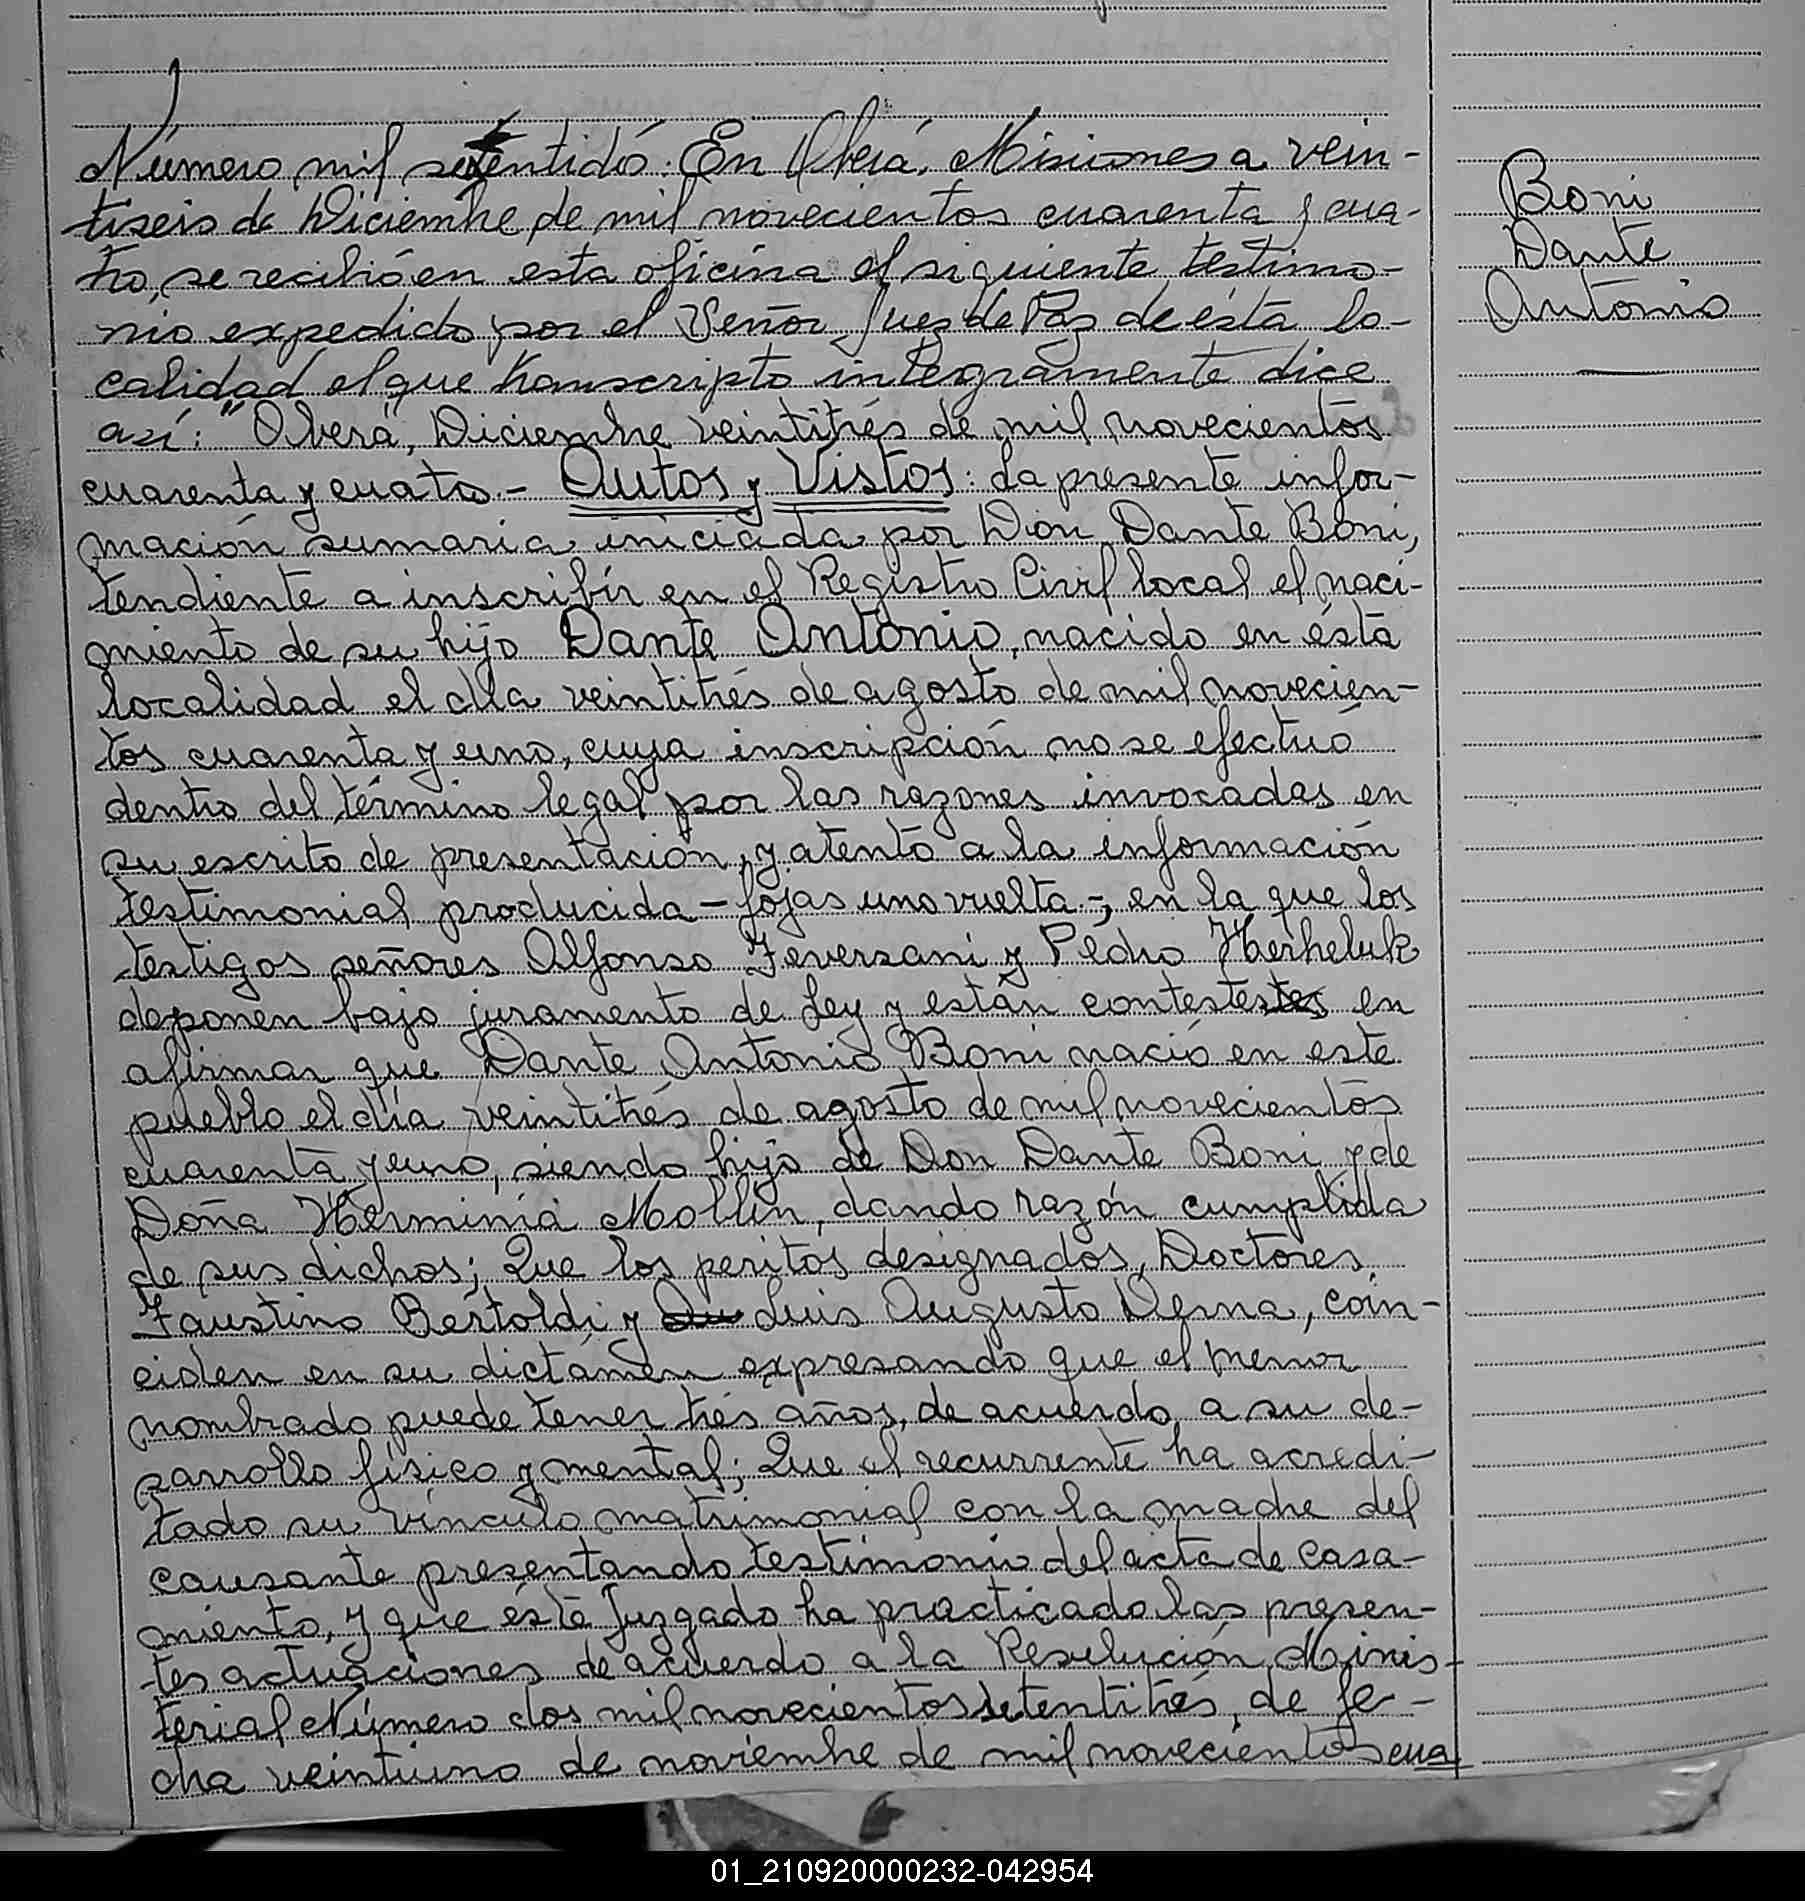 Número mil setentidó: En Oberá, Misiones a vein-
tiseis de Diciembre de mil novecientos cuarenta y cua-
tro, se recibió en esta oficina el siguiente testimo-
nio expedido por el Señor Juez de Paz de ésta lo-
calidad el que transcripto integramente dice
así: "Oberá, Diciembre veintitrés de mil novecientos
cuarenta y cuatro.- Autos y Vistos: La presente infor-
mación sumaria iniciada por Don Dante Boni,
tendiente a inscribir en el Registro Civil local el naci-
miento de su hijo Dante Antonio, nacido en ésta
localidad el día veintitrés de agosto de mil novecien-
tos cuarenta y uno, cuya inscripción no se efectuó
dentro del término legal por las razones invocadas en
su escrito de presentación, y atento a la información
testimonial producida - fojas uno vuelta -, en la que los
testigos señores Alfonso Feversani y Pedro Herheluk
deponen bajo juramento de Ley y están contestes en
afirmar que Dante Antonio Boni nació en este
pueblo el día veintitrés de agosto de mil novecientos
cuarenta y uno, siendo hijo de Don Dante Boni y de
Doña Herminia Mollin, dando razón cumplida
de sus dichos; Que los peritos designados, Doctores
Faustino Bertoldi y Luis Augusto Derna, coin-
ciden en su dictámen expresando que el menor
nombrado puede tener trés años, de acuerdo a su de-
sarrollo físico y mental; Que el recurrente ha acredi-
tado su vínculo matrimonial con la madre del
causante presentando testimonio del acta de casa-
miento, y que éste Juzgado ha practicado las presen-
tes actuaciones de acuerdo a la Resolución Minis-
terial Número dos mil novecientos setentitrés, de fe-
cha veintiuno de noviembre de mil novecientos cua
Boni
Dante
Antonio
01_210920000232-042954